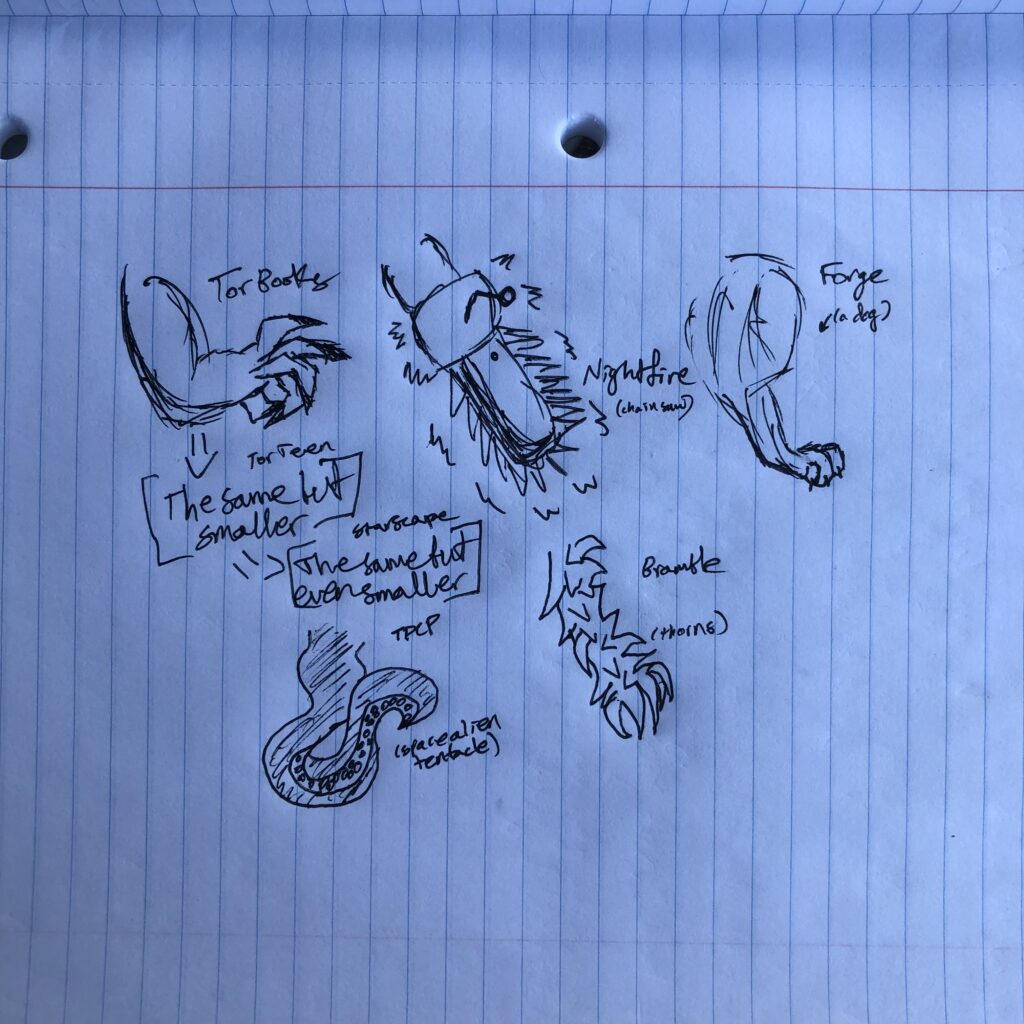 Tor Books
Tor Teen
The same but
smaller
Starscape
The same but
even smaller
TPCP
(space alien
tentacle)
Nightfire
(chainsaw)
Forge
(a dog)
Bramble
(thorns)